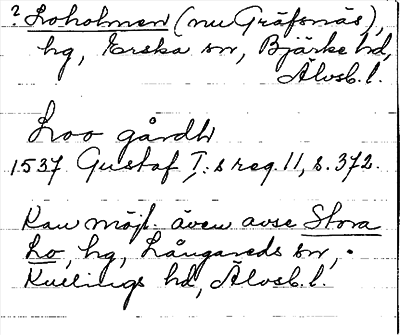 ? Loholmen (nu Gräfsnäs),
hg, Erska sn, Bjärke hd,
Älvsb. l.
Loo gårdh
1537 Gustaf I:s reg. 11, s. 372.
Kan möjl. även avse Stora
Lo, hg, Långareds sn,
Kullings hd, Älvsb. l.